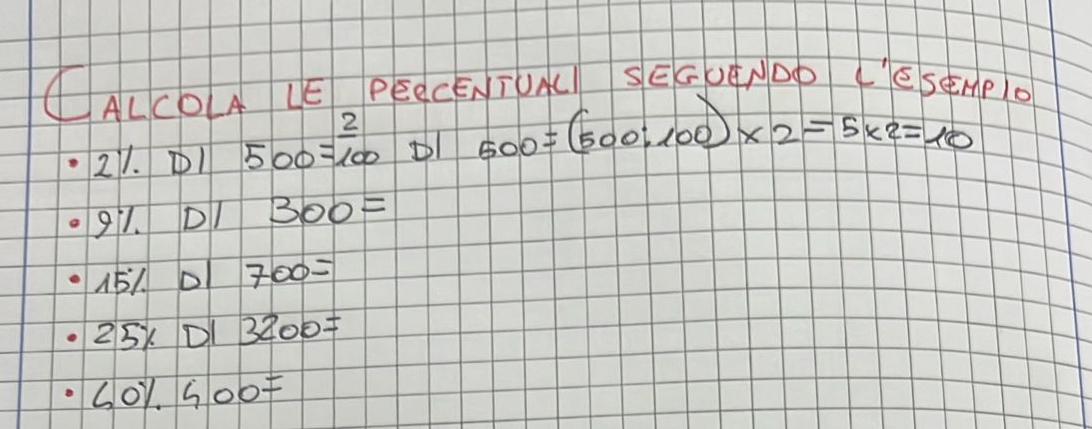 CALCOLA LE PERCENTUALI SEGUENDO L'ESEMPIO
• 2% DI 500 = 2/100 DI 500 = (500:100) × 2 = 5×2 = 10
• 9% DI 300 =
• 15% DI 700 =
• 25% DI 3200 =
• 40% 400 =